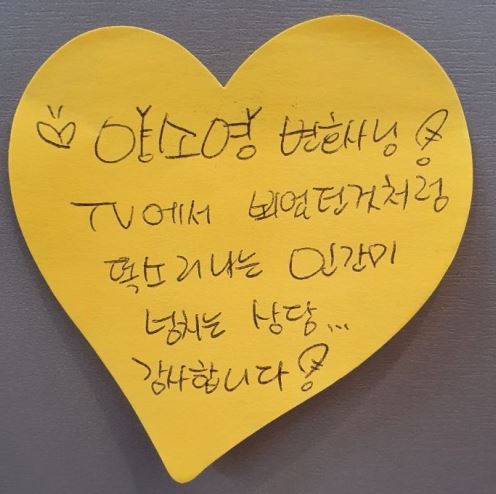 양소영 변호사님!
TV에서 뵈었던것처럼
똑소리나는 인간미
넘치는 상담...
감사합니다!